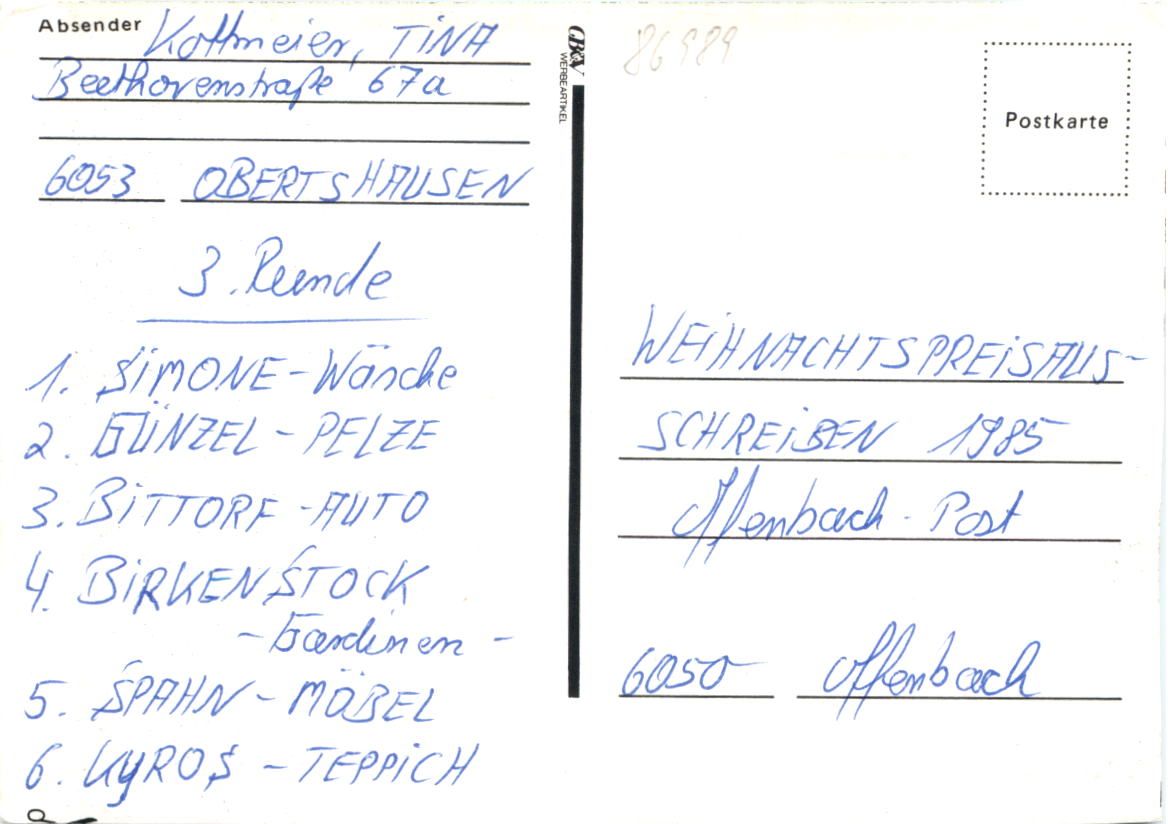 Absender Kottmeier, TiNA
Beethovenstraße 67a
6053 OBERTSHAUSEN
3. Runde
1. SiMONE - Wäsche
2. GÜNZEL - PELZE
3. BiTTORF - AUTO
4. BiRKENSTOCK
- Gardinen -
5. SPAHN - MÖBEL
6. KyROS - TEPPiCH
WERBEARTIKEL
86989
Postkarte
WEiHNACHTSPREiSAUS-
SCHREiBEN 1985
Offenbach - Post
6050 Offenbach